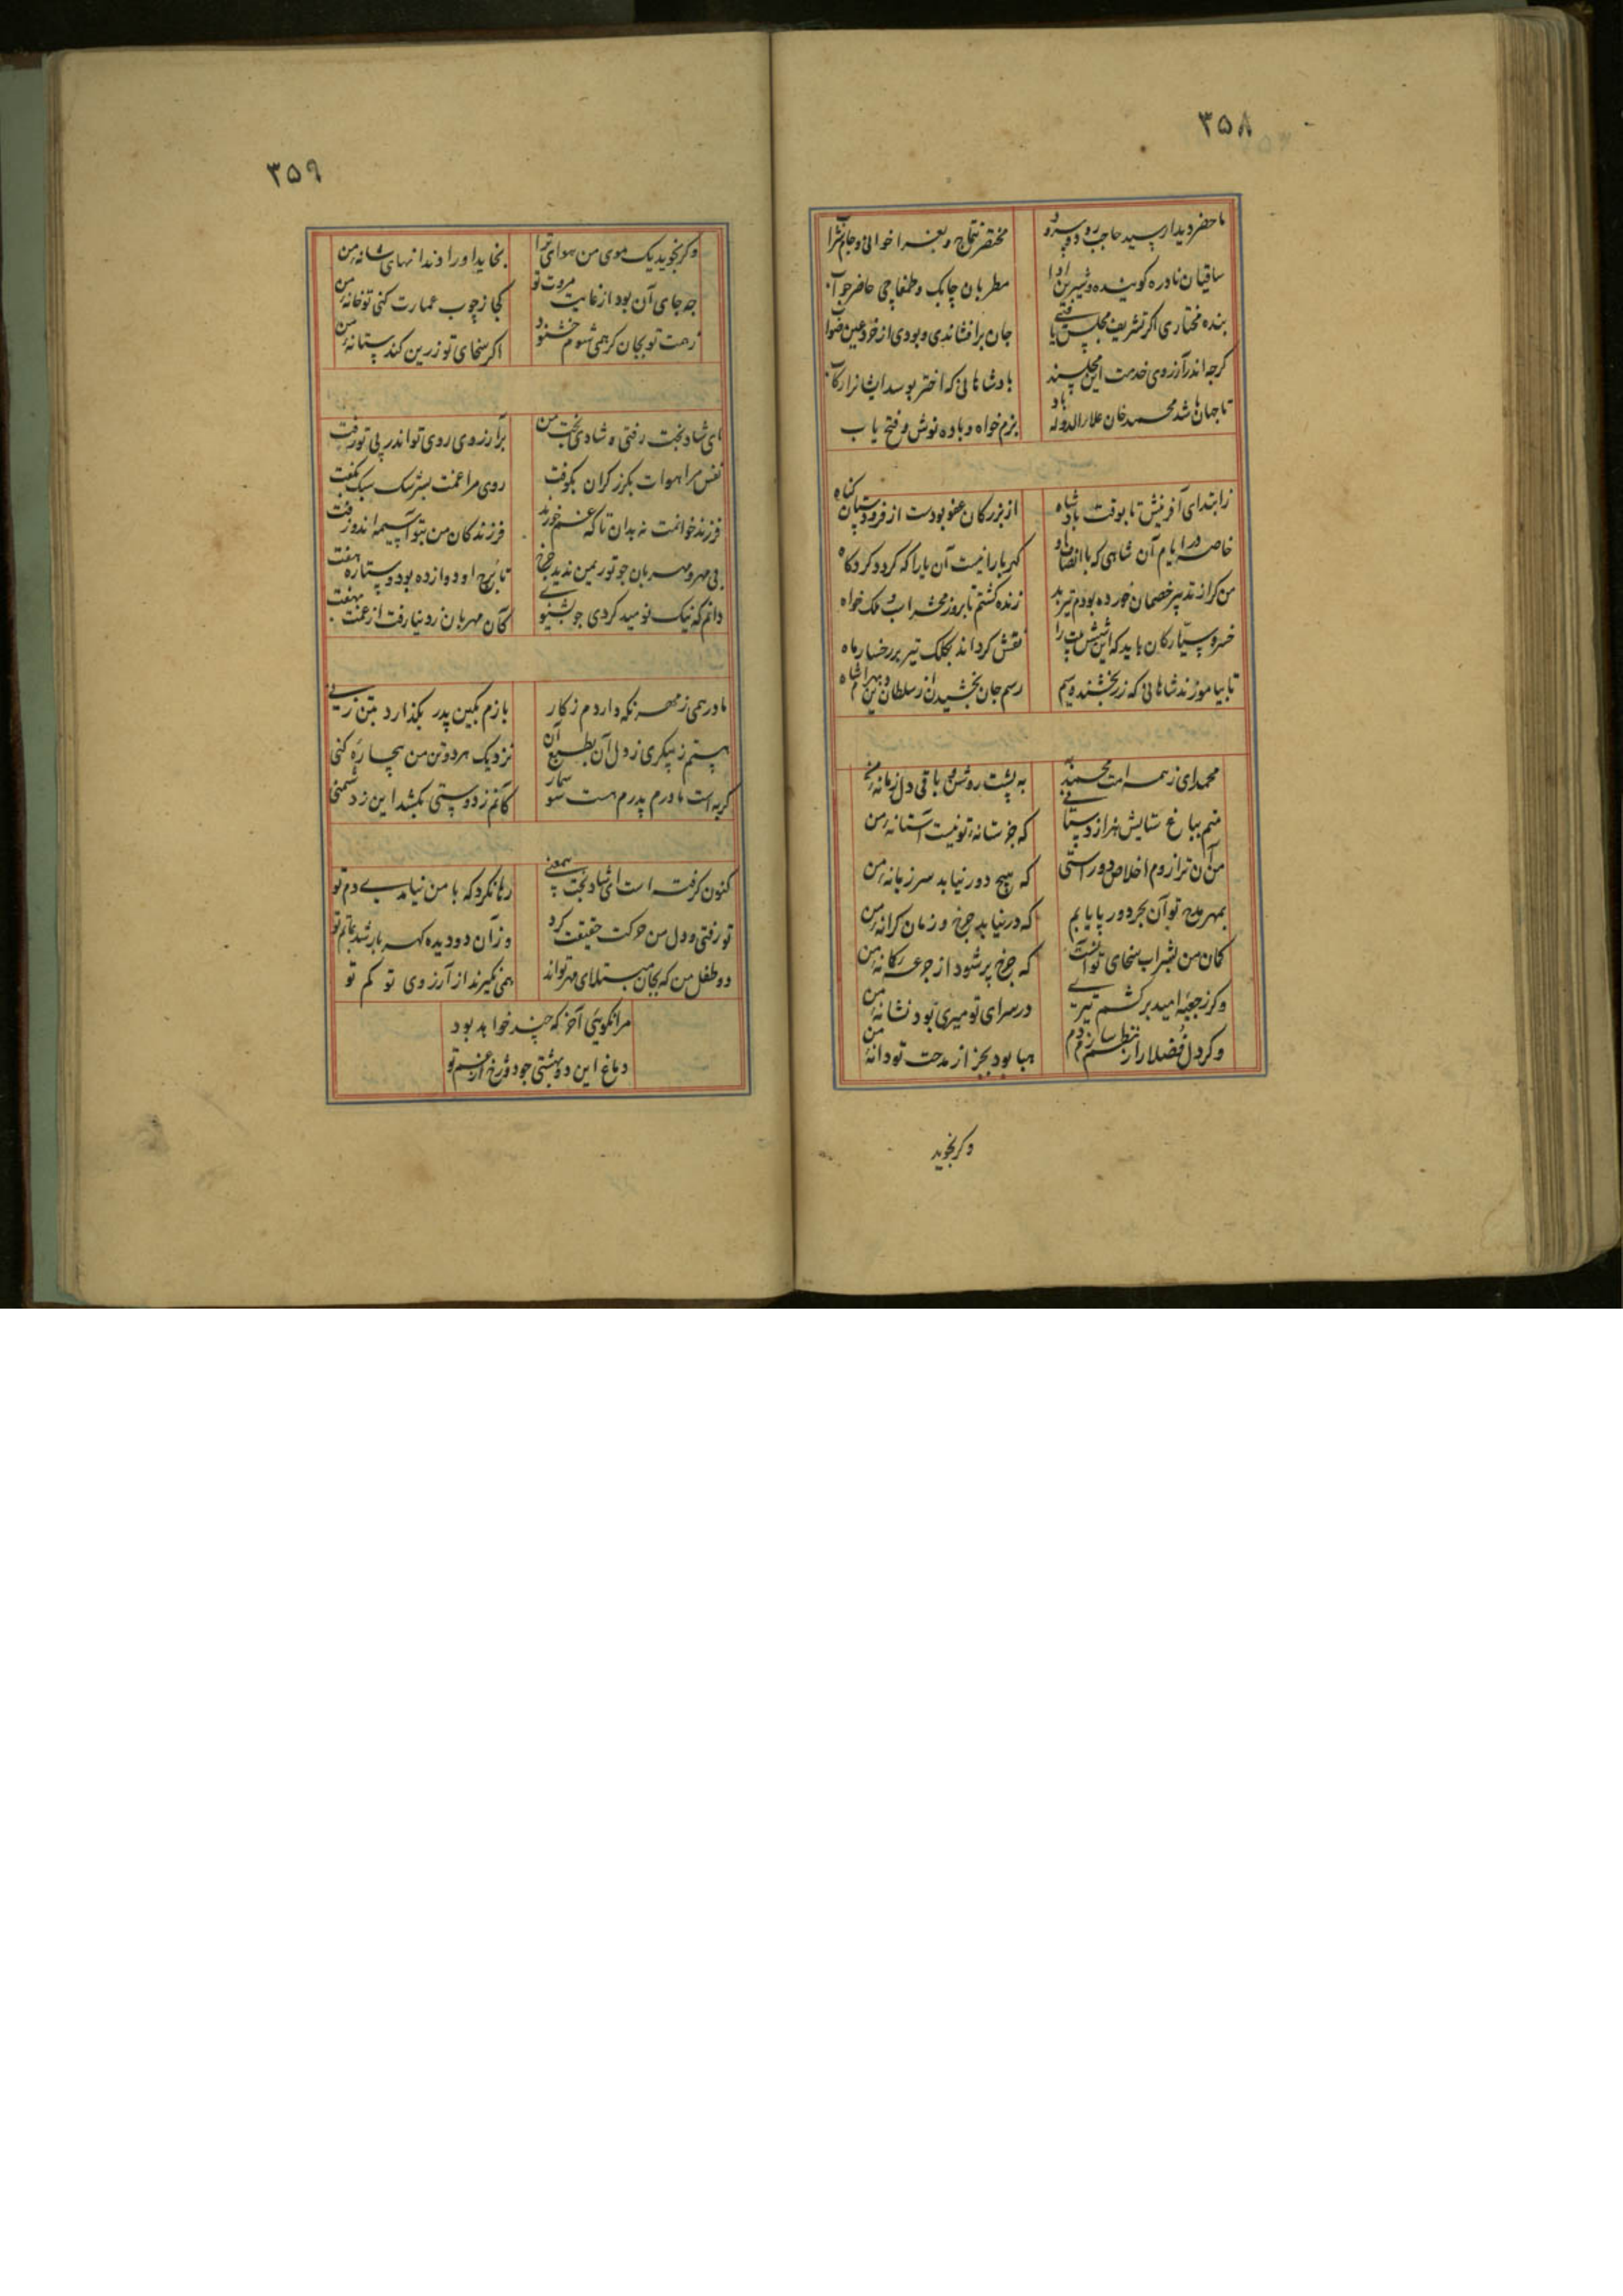 ۳۵۸
ماحضر دیدار سید حاجب رود و سرود
مختصر تتماج و بغرا خوانی و جام شراب
ساقیان نادره گوینده و شیرین ادا
مطربان چابک و طمغاجی حاضر جواب
بنده مختاری اگر تشریف مجلس یافتی
جان برافشاندی و بودی از خرد عین صواب
کرچه اندر آرزوی خدمت این مجلسند
بادشاهانی که اختر بوسد ایشانرا رکاب
تا جهان باشد محمد خان علاء الدوله باد
بزم خواه و باده نوش و فتح یاب
ز ابتدای آفرینش تا بوقت بادشاه
از بزرکان عفو بودست از فرودستان کناه
خاصه در ایام آن شاهی که با انصاف او
کهربا را نیست آن یارا که کردد کرد کاه
من کز تدبیر خصمان خورده بودم تیر بد
زنده کشتم تا بروز محشر اب ملک خواه
خسرو سیارکان باید که این شش بیت را
نقش کرداند بکلک تیر بر رخسار ماه
تا بیاموزند شاهانی که زر بخشند و سیم
رسم جان بخشیدن از سلطان دین بهرامشاه
محمد ای زهمه امت محمد
به پشت روشن و باقی دل زمانه من
منم بباغ ستایش هزاردستانی
که جز ستانه تو نیست آستانه من
من آن ترازوم اخلاص و راستی
که هیچ دور نیابد سر زبانه من
بمهر مدح تو آن بحر دور پایابم
که در نیابد چرخ و زمان کرانه من
کان من بشراب سخای تو آنست
که چرخ پر شود از جرعه کانه من
وکر زجعبه امید برکشم تیری
در سرای تو میری بود نشانه من
وکر دل فضلا را ز نظم سازم دام
هبا بود بجز از مدحت تو دانه من
وکر بجوید
۳۵۹
وکر بجوید یک موی من هوای ترا
بخاید او را دندانهای شانه من
چه جای آن بود از غایت مروت تو
کجا ز چوب عمارت کنی تو خانه من
زهت تو بجان کر همی شوم خشنود
اکر سخای تو زرین کند ستانه من
ای شاد بخت رفتی و شادی بخت من
بر آرزوی روی تو اندر پی تو رفت
نفس مرا هوات بکرز کران بکوفت
روی مرا غمت بسرشک سبک بتفت
فرزند خوانمت نه بدان تا که غم خورند
فرزندکان من بتو آسیمه اند و زفت
بی مهر و مهربان چو تو بر من ندید چرخ
تا برج او دوازده بود و ستاره هفت
دانم که نیک نومید کردی چو بشنوی
کان مهربان ز دنیا رفت از غمت بهفت
مادر همی ز مهر نکه داردم ز کار
بازم بکین پدر بکذارد بتن زنی
هستم ز پیکری ز دل آن بطبع آن
نزدیک هر دو تن من بیچاره کنی
کربه است مادرم پدرم هست سوسمار
کانم ز دوستی بکشد این ز دشمنی
کنون کرفته است ای شاد بخت بیمعنی
رها نکرد که با من نیامدی دم تو
تو رفتی و دل من حرکت حقیقت کرد
وزان دو دیده کهر بار شد بماتم تو
دو طفل من که بجان مبتلای مهر تواند
همی نمیرند از آرزوی تو کم تو
مرا نکوئی آخر که چند خواهد بود
دماغ این دو بهشتی چو دوزخ از غم تو